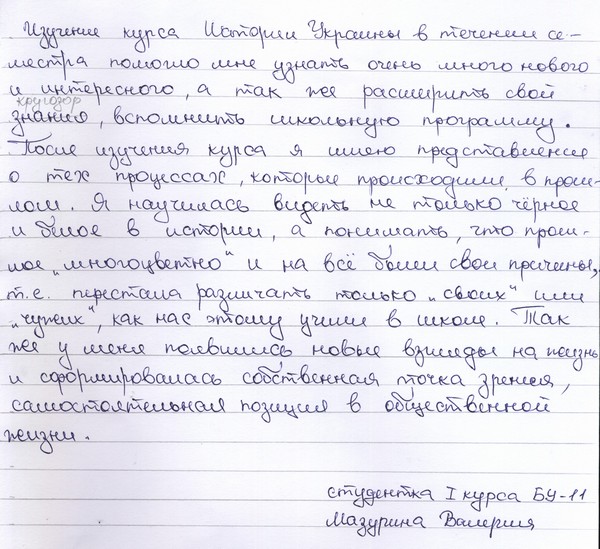 Изучение курса Истории Украины в течении се-
местра помогло мне узнать очень много нового
и интересного, а так же расширить свой
кругозор
знания, вспомнить школьную программу.
После изучения курса я имею представление
о тех процессах, которые происходили в прош-
лом. Я научилась видеть не только чёрное
и белое в истории, а понимать, что прош-
лое "многоцветно" и на всё были свои причины,
т.е. перестала различать только "своих" или
"чужих", как нас этому учили в школе. Так
же у меня появились новые взгляды на жизнь
и сформировалась собственная точка зрения,
самостоятельная позиция в общественной
жизни.
студентка I курса БУ-11
Мазурина Валерия